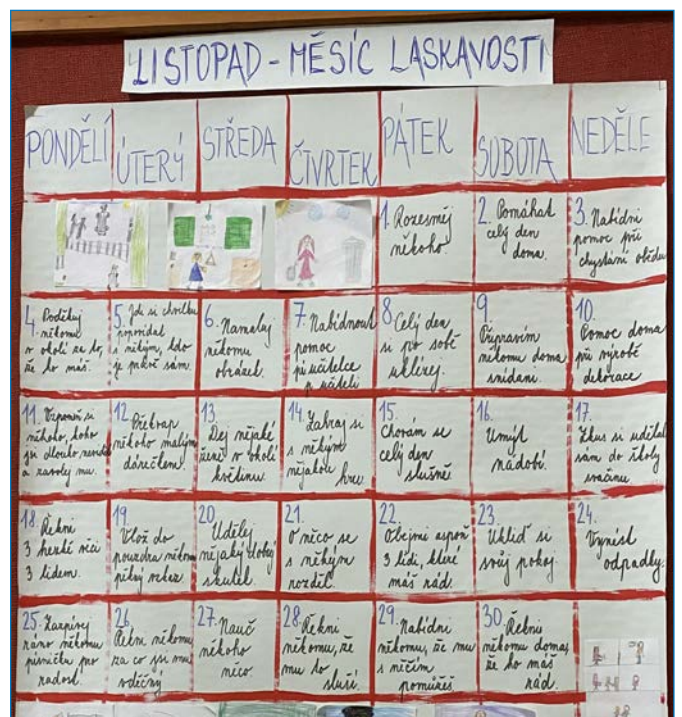 LISTOPAD - MĚSÍC LASKAVOSTI
PONDĚLÍ
ÚTERÝ
STŘEDA
ČTVRTEK
PÁTEK
SOBOTA
NEDĚLE
1. Rozesměj
někoho
2. Pomáhat
celý den
doma.
3. Nabídni
pomoc při
chystání obědu
4. Poděkuj
někomu
v okolí za to,
že ho máš.
5. Jdi si chvilku
popovídat
s někým, kdo
je právě sám.
6. Namaluj
někomu
obrázek.
7. Nabídnout
pomoc
p. učitelce
p. učiteli
8. Celý den
si po sobě
uklízej.
9
Připravím
někomu doma
snídani.
10.
Pomoc doma
při výrobě
dekorace
11. Vzpomeň si
někoho, koho
jsi dlouho neviděl
a zavolej mu.
12 Překvap
někoho malým
dárečkem.
13
Dej nějaké
ženě v okolí
květinu.
14. Zahraj si
s někým
nějakou hru.
15.
Chovám se
celý den
slušně.
16.
Umýt
nádobí.
17.
Zkus si udělat
sám do školy
svačinu.
18. Řekni
3 hezké věci
3 lidem.
19.
Vlož do
pouzdra někomu
pěkný vzkaz.
20.
Udělej
nějaký dobrý
skutek.
21.
O něco se
s někým
rozděl.
22.
Obejmi aspoň
3 lidi, které
máš rád.
23.
Ukliď si
svůj pokoj
24.
Vynést
odpadky.
25. Zazpívej
ráno někomu
písničku pro
radost.
26.
Řekni někomu
za co jsi mu
vděčný
27.
Nauč
někoho
něco.
28. Řekni
někomu, že
mu to
sluší.
29. Nabídni
někomu, že mu
s něčím
pomůžeš.
30. Řekni
někomu doma,
že ho máš
rád.